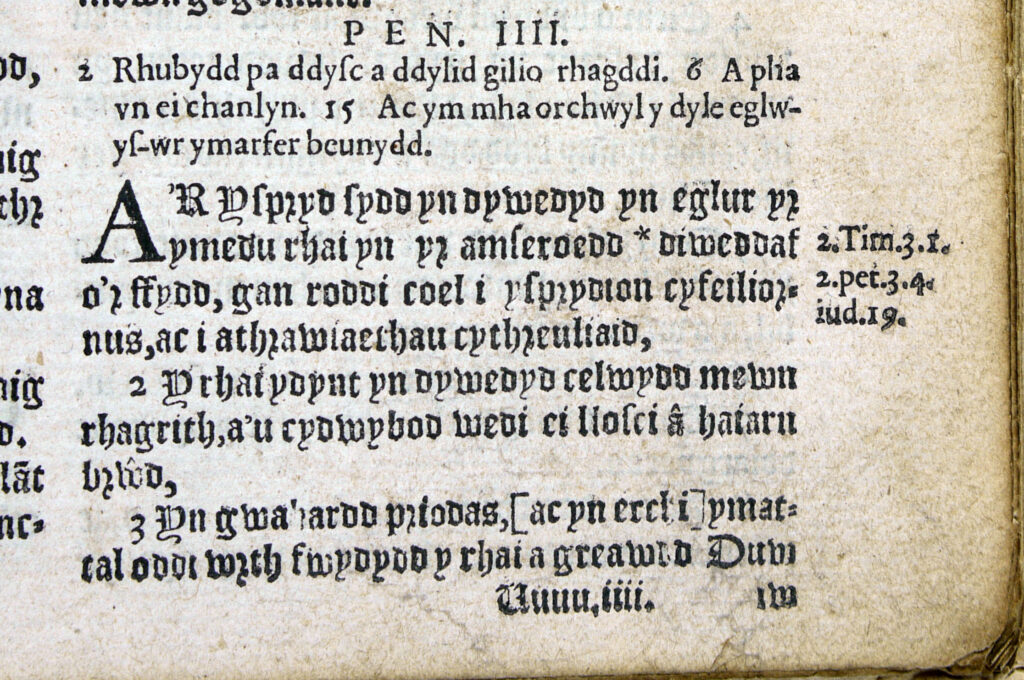 mewn gogoniant.
PEN. IIII.
2 Rhubydd pa ddyſc a ddylid gilio rhagddi. 6 A pha
yn ei chanlyn. 15 Ac ym mha orchwyl y dyle eglw-
yſ-wr ymarfer beunydd.
A'R Yſpryd ſydd yn dywedyd yn eglur yr
ymedu rhai yn yr amſeroedd * diweddaf
o'r ffydd, gan roddi coel i yſprydion cyfeilior-
nus, ac i athrawiaethau cythreuliaid,
2 Y rhai ydynt yn dywedyd celwydd mewn
rhagrith, a'u cydwybod wedi ei lloſci â haiarn
brŵd,
3 Yn gwahardd priodas, [ac yn erchi] ymat-
tal oddi wrth fwydydd y rhai a greawdd Duw
Uuuu.iiii. iw
2.Tim.3.1.
2.pet.3.4.
iud.19.